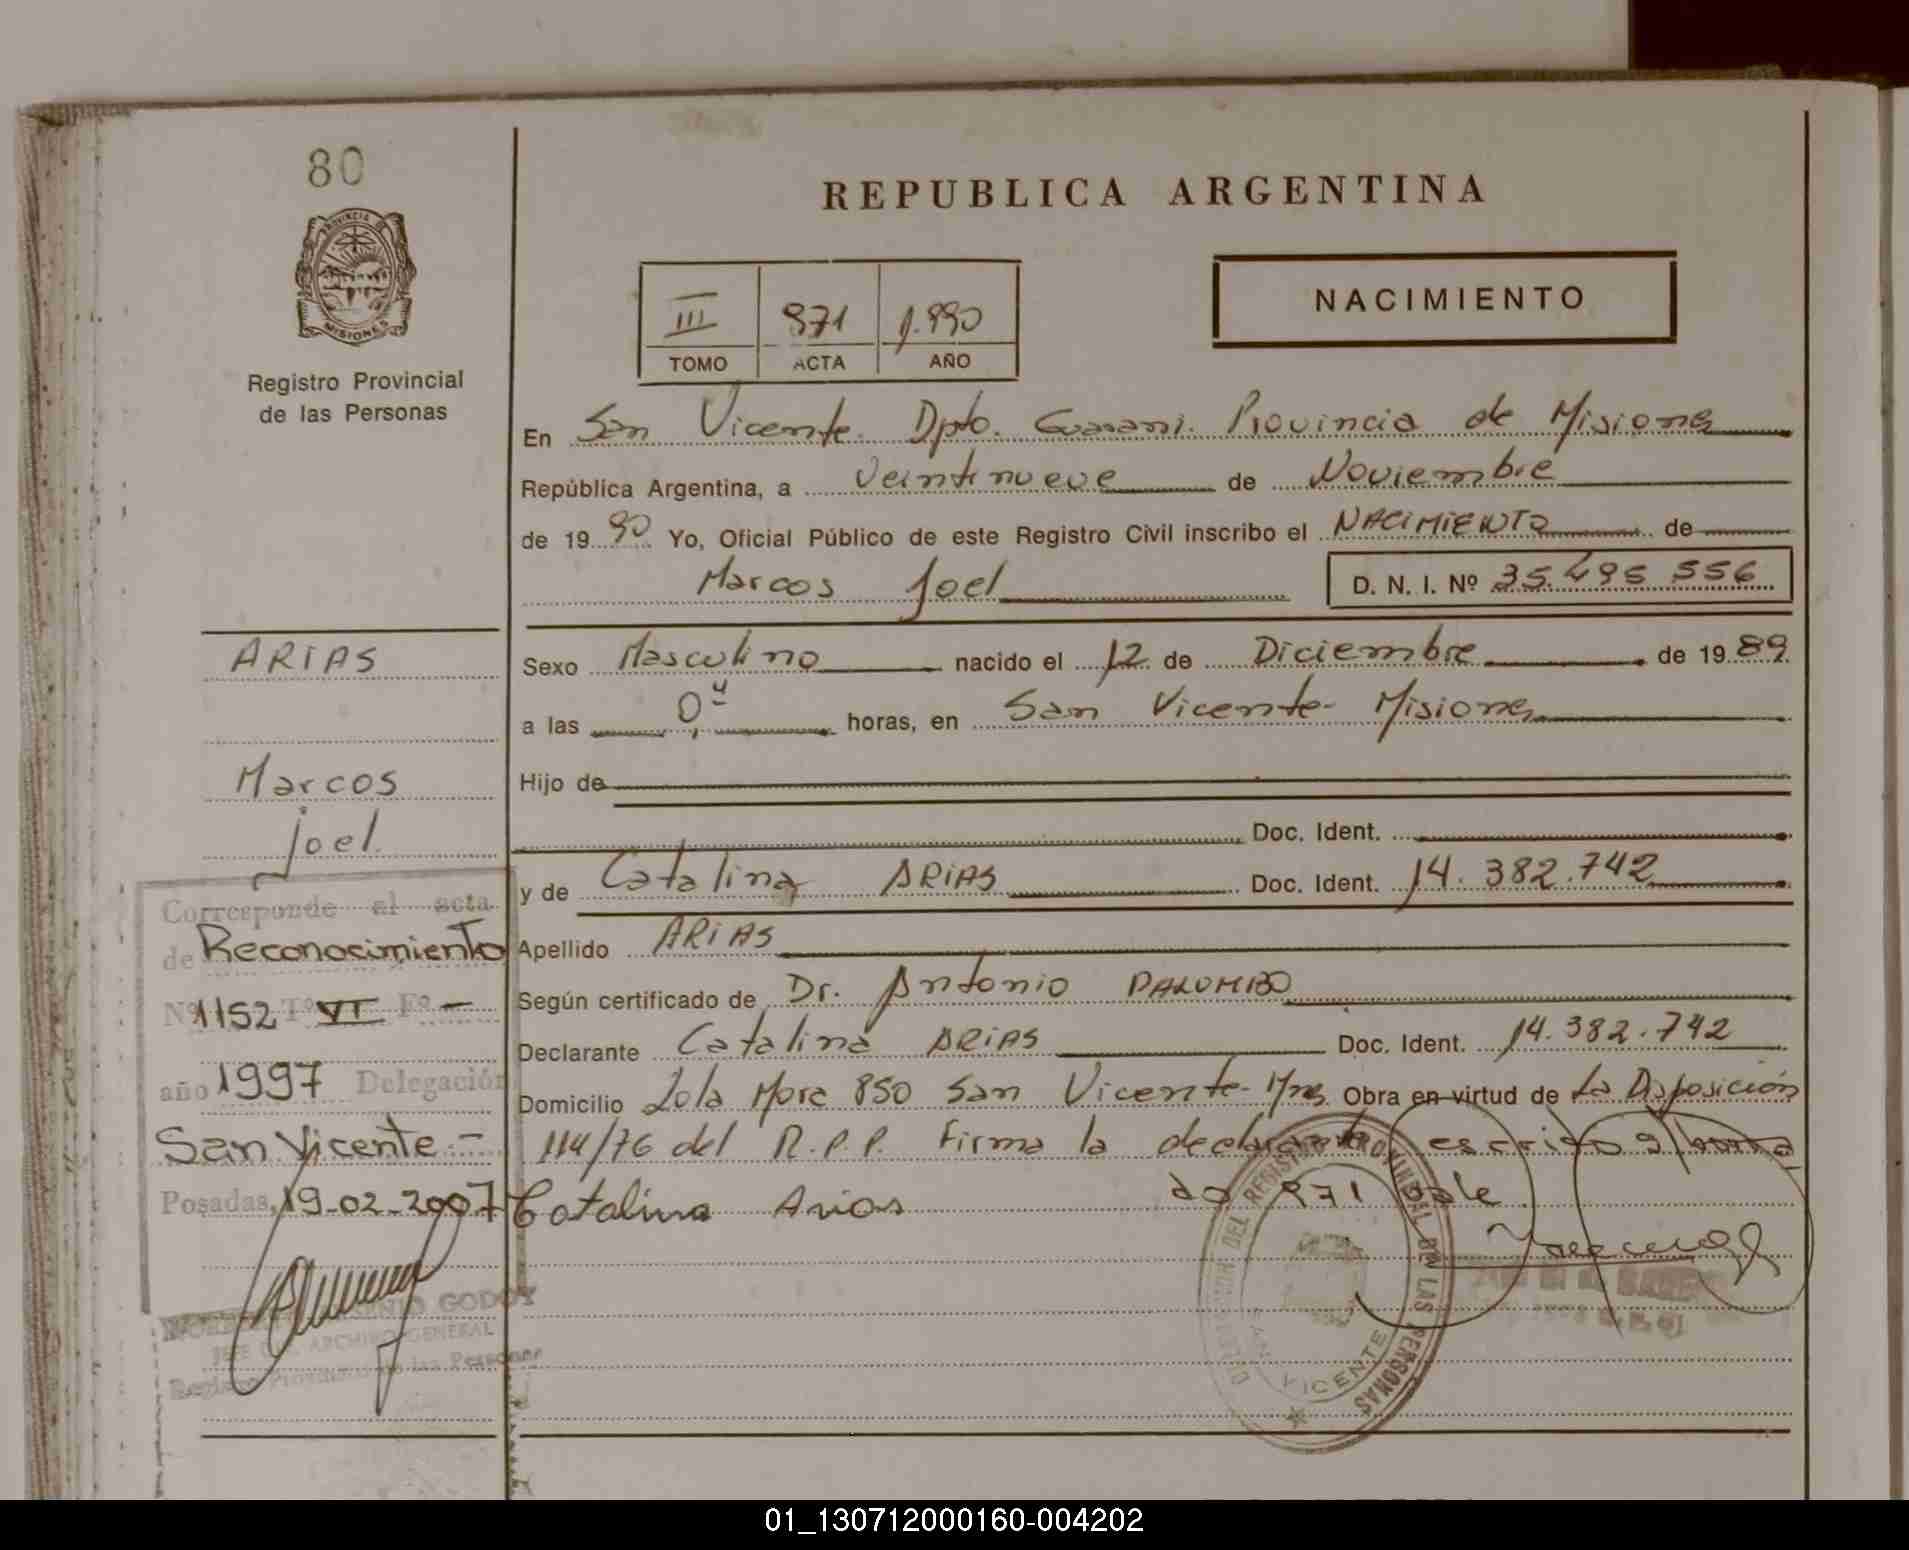 80
PROVINCIA
MISIONES
Registro Provincial
de las Personas
REPUBLICA ARGENTINA
III 971 1.990
TOMO ACTA AÑO
NACIMIENTO
En San Vicente Dpto. Guarani. Provincia de Misiones
República Argentina, a Veintinueve de Noviembre
de 19 90 Yo, Oficial Público de este Registro Civil inscribo el NACIMIENTO de
Marcos Joel D. N. I. Nº 35.495 556
Sexo Masculino nacido el 12 de Diciembre de 19 89
a las 04 horas, en San Vicente- Misiones
Hijo de
Doc. Ident.
y de Catalina ARIAS Doc. Ident. 14.382.742
Apellido ARIAS
Según certificado de Dr. Antonio PALOMBO
Declarante Catalina ARIAS Doc. Ident. 14.382.742
Domicilio Lola Mora 850 San Vicente-Mnes Obra en virtud de La Disposición
114/76 del R.P.P. Firma la declarante
do 971 vale
Catalina Arias
ARIAS
Marcos
Joel.
Corresponde al acta
de Reconocimiento
Nº 1152 Tº VI Fº -
año 1997 Delegación
San Vicente.-
Posadas, 19-02-2007
GODOY
JEFE ARCHIVO GENERAL
Registro Provincial de las Personas
DEL REGISTRO PROVINCIAL DE LAS PERSONAS
SAN VICENTE
01_130712000160-004202